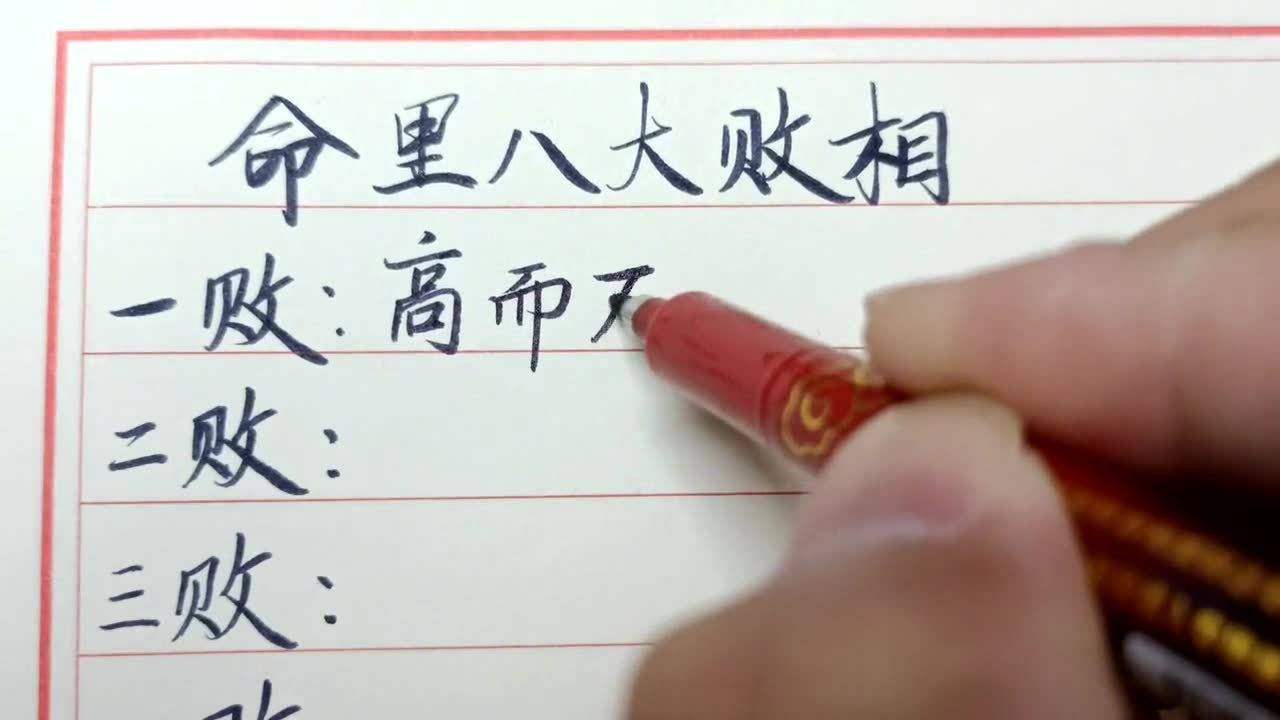 命里八大败相
一败：高而
二败：
三败：
败